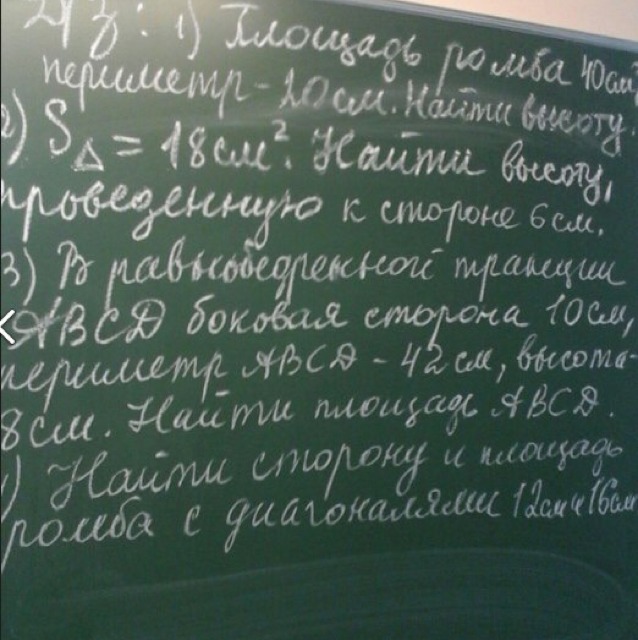 Д/з: 1) Площадь ромба 40см²
периметр - 20см. Найти высоту.
2) S△ = 18см². Найти высоту,
проведенную к стороне 6см.
3) В равнобедренной трапеции
ABCD боковая сторона 10см,
периметр ABCD - 42см, высота-
8см. Найти площадь ABCD.
) Найти сторону и площадь
ромба с диагоналями 12см и 16см